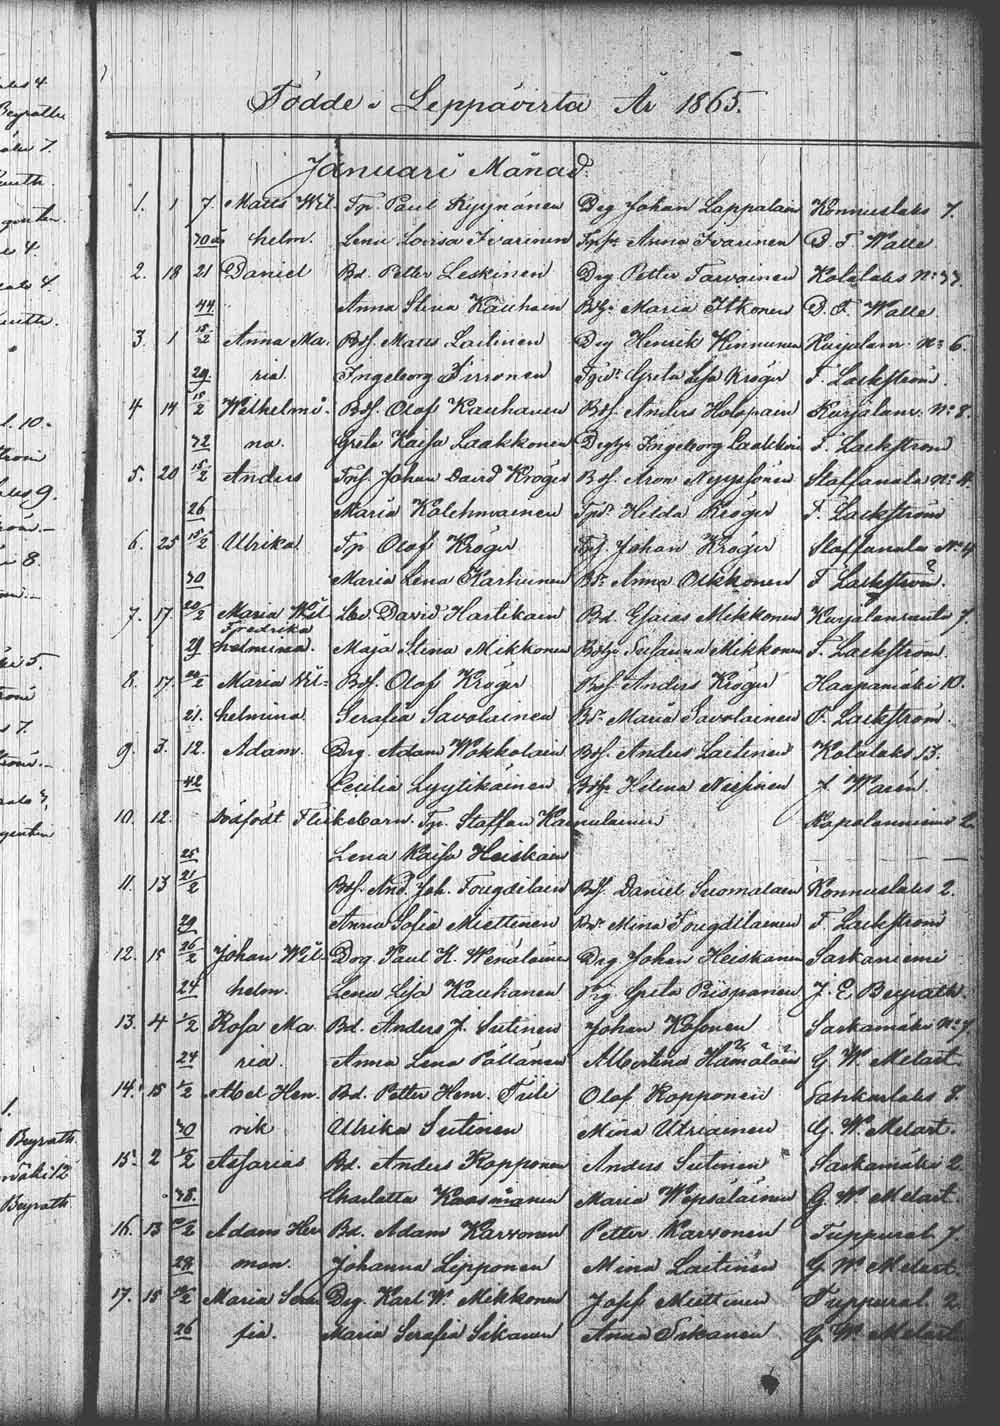 Födde i Leppävirta År 1865.
Januari Månad.
1. 1 7. Matts Wil- Tp. Paul Kyynänen Drg Johan Lappalain Konnuslaks 7.
helm. Lena Lovisa Ivarinen Anna Ivarinen D. F. Walle
2. 18 21 Daniel Bd. Petter Leskinen Drg Petter Tarvainen Kotalaks No
44 Anna Stina Kauhain Maria Itkonen D. F. Walle
3. 1 15/2 Anna Ma- Bdf. Matts Laitinen Drg Henrik Kinnunen Kurjalanr. No 6.
29. ria. Ingeborg Sirronen Greta Lisa Kröger F. Lackström.
4 14 15/2 Wilhelmi- Bdf. Olof Kauhanen Bdf. Anders Holopain Kurjalanr. No 8.
32 na. Greta Kaisa Laakkonen Ingeborg Laakkoin F. Lackström
5. 20 15/2 Anders Tpf. Johan David Kröger Bdf. Aron Nyyssönen Staffanala No 4.
26 Maria Kolehmainen Tpdr Hilda Kröger F. Lackström
6. 25 15/2 Ulrika Tp Olof Kröger Tpf. Johan Kröger Staffanala No 4
30 Maria Lena Karhunen Bdr Anna Okkonen F Lackström.
7. 17. 20/2 Maria Wil- David Hartikain Bd. Esaias Mikkonen Kurjalanranta 7.
Fredrika
29 helmina. Maja Stina Mikkonen Susanna Mikkonen F. Lackström.
8. 17. 20/2 Maria Wil- Bdf. Olof Kröger Bdf Anders Kröger Haapamäki 10.
21. helmina Serafia Savolainen Bdr Maria Savolainen F. Lackström.
9. 3. 12. Adam. Drg. Adam Wokkolain Bdf. Anders Laitinen Kotalaks 13.
42 Cecilia Lyytikäinen Helena Nissinen J Warén.
10. 12. Dödfödt Flickebarn. Tp. Staffan Kainulainen Kopolanniemi 2.
25 Lena Kaisa Heiskain
11. 13 21/2 Bdf. And. Joh. Tougdilain Bdf. Daniel Suomalain Konnuslaks 2.
29 Anna Sofia Miettinen Bdr Mina Tougdilainen F. Lackström
12. 15 26/2 Johan Wil- Drg. Paul H. Wenäläinen Drg Johan Heiskanen Sarkaniemi
24 helm. Lena Lisa Kauhanen Greta Piispanen J. E Beyrath.
13. 4 1/2 Rosa Ma- Bd. Anders J. Sutinen Johan Kosonen Sarkamäki No 7.
24 ria. Anna Lena Pöllänen Albertina Hämäläin G W. Melart.
14. 15 1/2 Abel Hen- Bd. Petter Henr. Tiili Olof Kopponen Sahkarlaks 8.
30 rik Ulrika Sutinen Mina Utriainen G. W. Melart.
15. 2 1/2 Asarias Bd. Anders Kopponen Anders Sutinen Sarkamäki 2.
38. Charlotta Kaasmanen Maria Wepsäläinen G W Melart.
16. 13 Adam Her- Bd. Adam Karvonen Petter Karvonen Tuppural. 7.
28 man. Johanna Lipponen Mina Laitinen G. W. Melart.
17. 15 Maria Sera- Drg. Karl W. Mikkonen Josef Miettinen Tuppural. 2.
26 fia. Maria Serafia Sikanen Anna Sikanen G. W. Melart